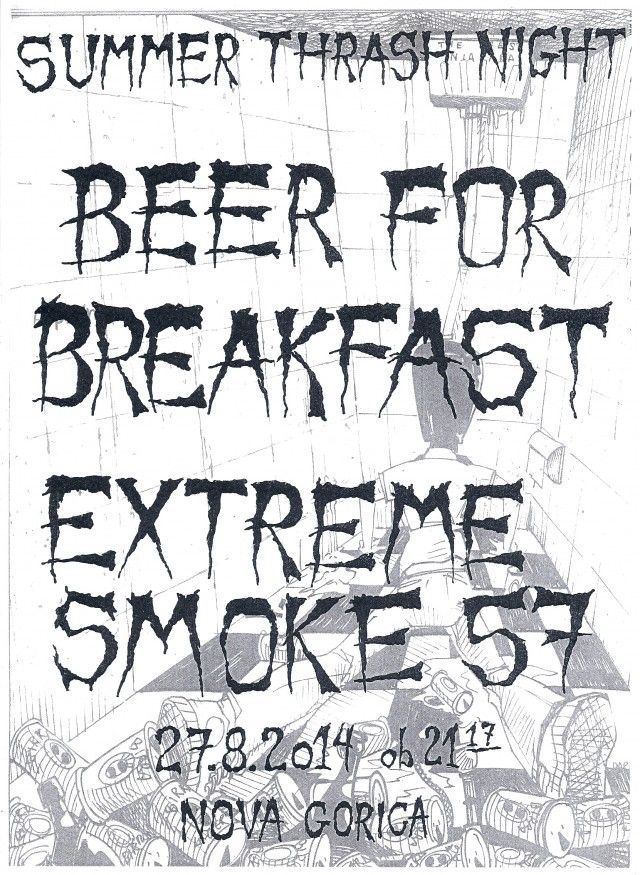 SUMMER THRASH NIGHT
BEER FOR
BREAKFAST
EXTREME
SMOKE 57
27.8.2014 ob 21 17
NOVA GORICA